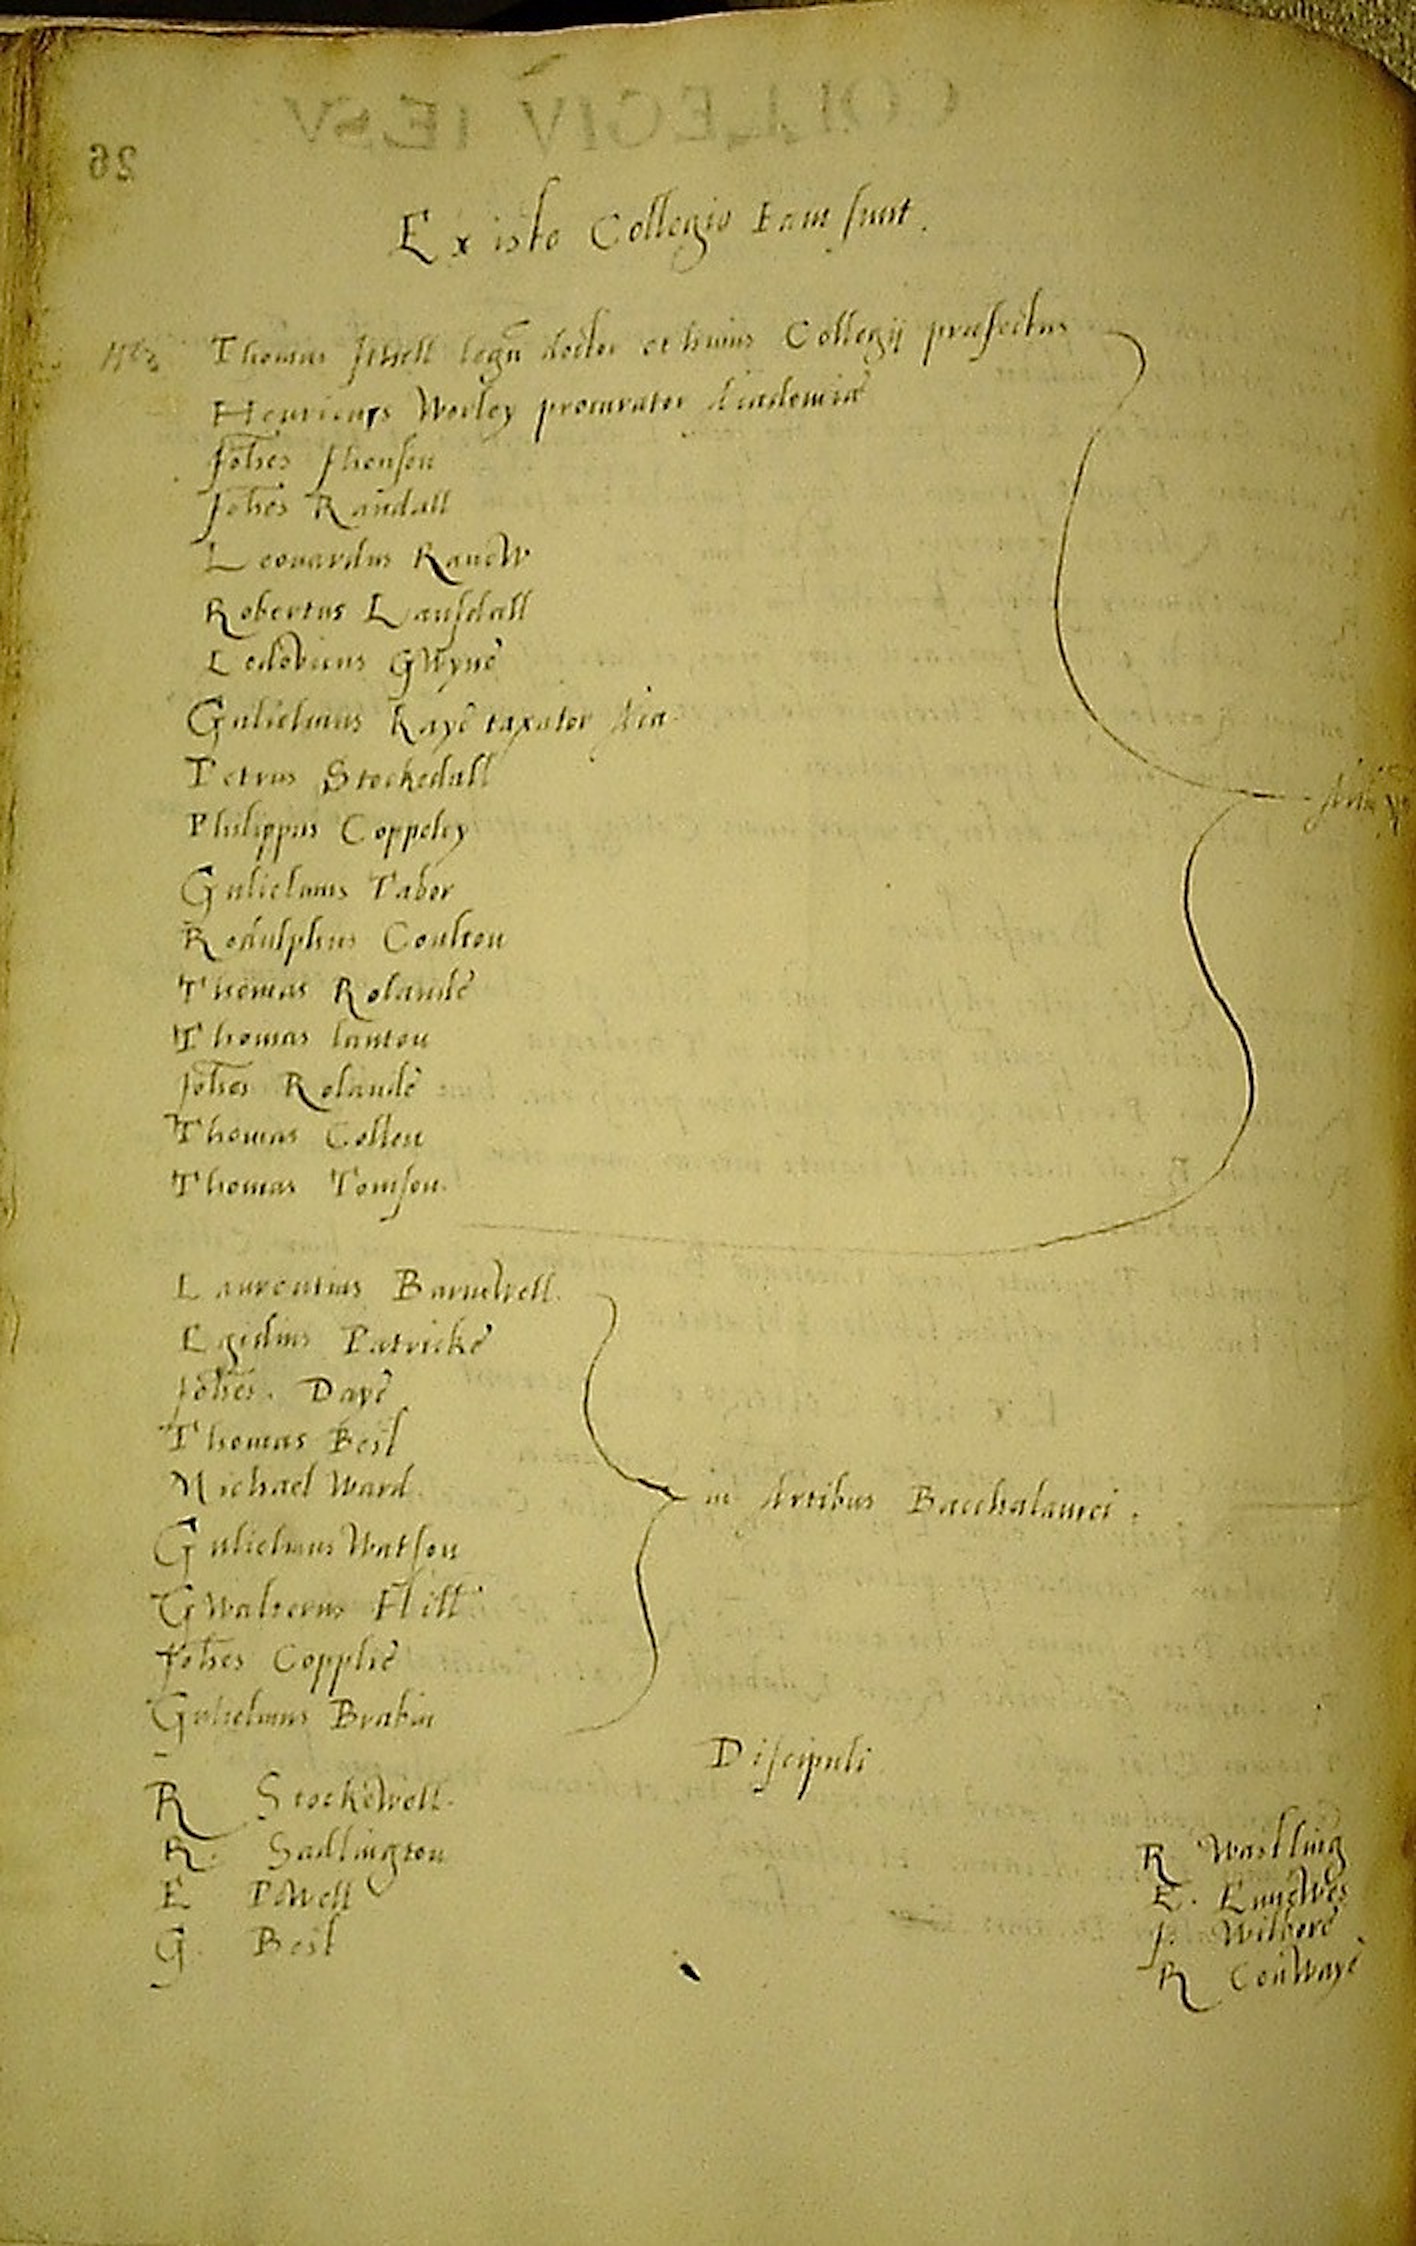 COLLEGIV IESV
26
Ex isto Collegio Iam sunt.
Thomas Ithell legū doctor et huius Collegij præfectus
Henricus Worley procurator Academiæ
Johēs Jhonson
Johēs Randall
Leonardus Ranew
Robertus Lansdall
Lodovicus Gwyne
Gulielmus Kaye taxator Aca.
Petrus Stockedall
Philippus Coppeley
Gulielmus Tabor
Rodulphus Coulton
Thomas Rolande
Thomas lanton
Johēs Rolande
Thomas Collen
Thomas Tomson.
Laurentius Barnwell.
Egidius Patricke
Johēs. Daye
Thomas Best
Michael Ward.
in Artibus Bacchalaurei.
Gulielmus Watson
Gwalterus Hill
Johēs Copplie
Gulielmus Brabin
Discipuli.
R Stockewell.
R. Sadlington
E Powell
G. Best
R Wastling
E.
J. Wilbore
R Conwaye